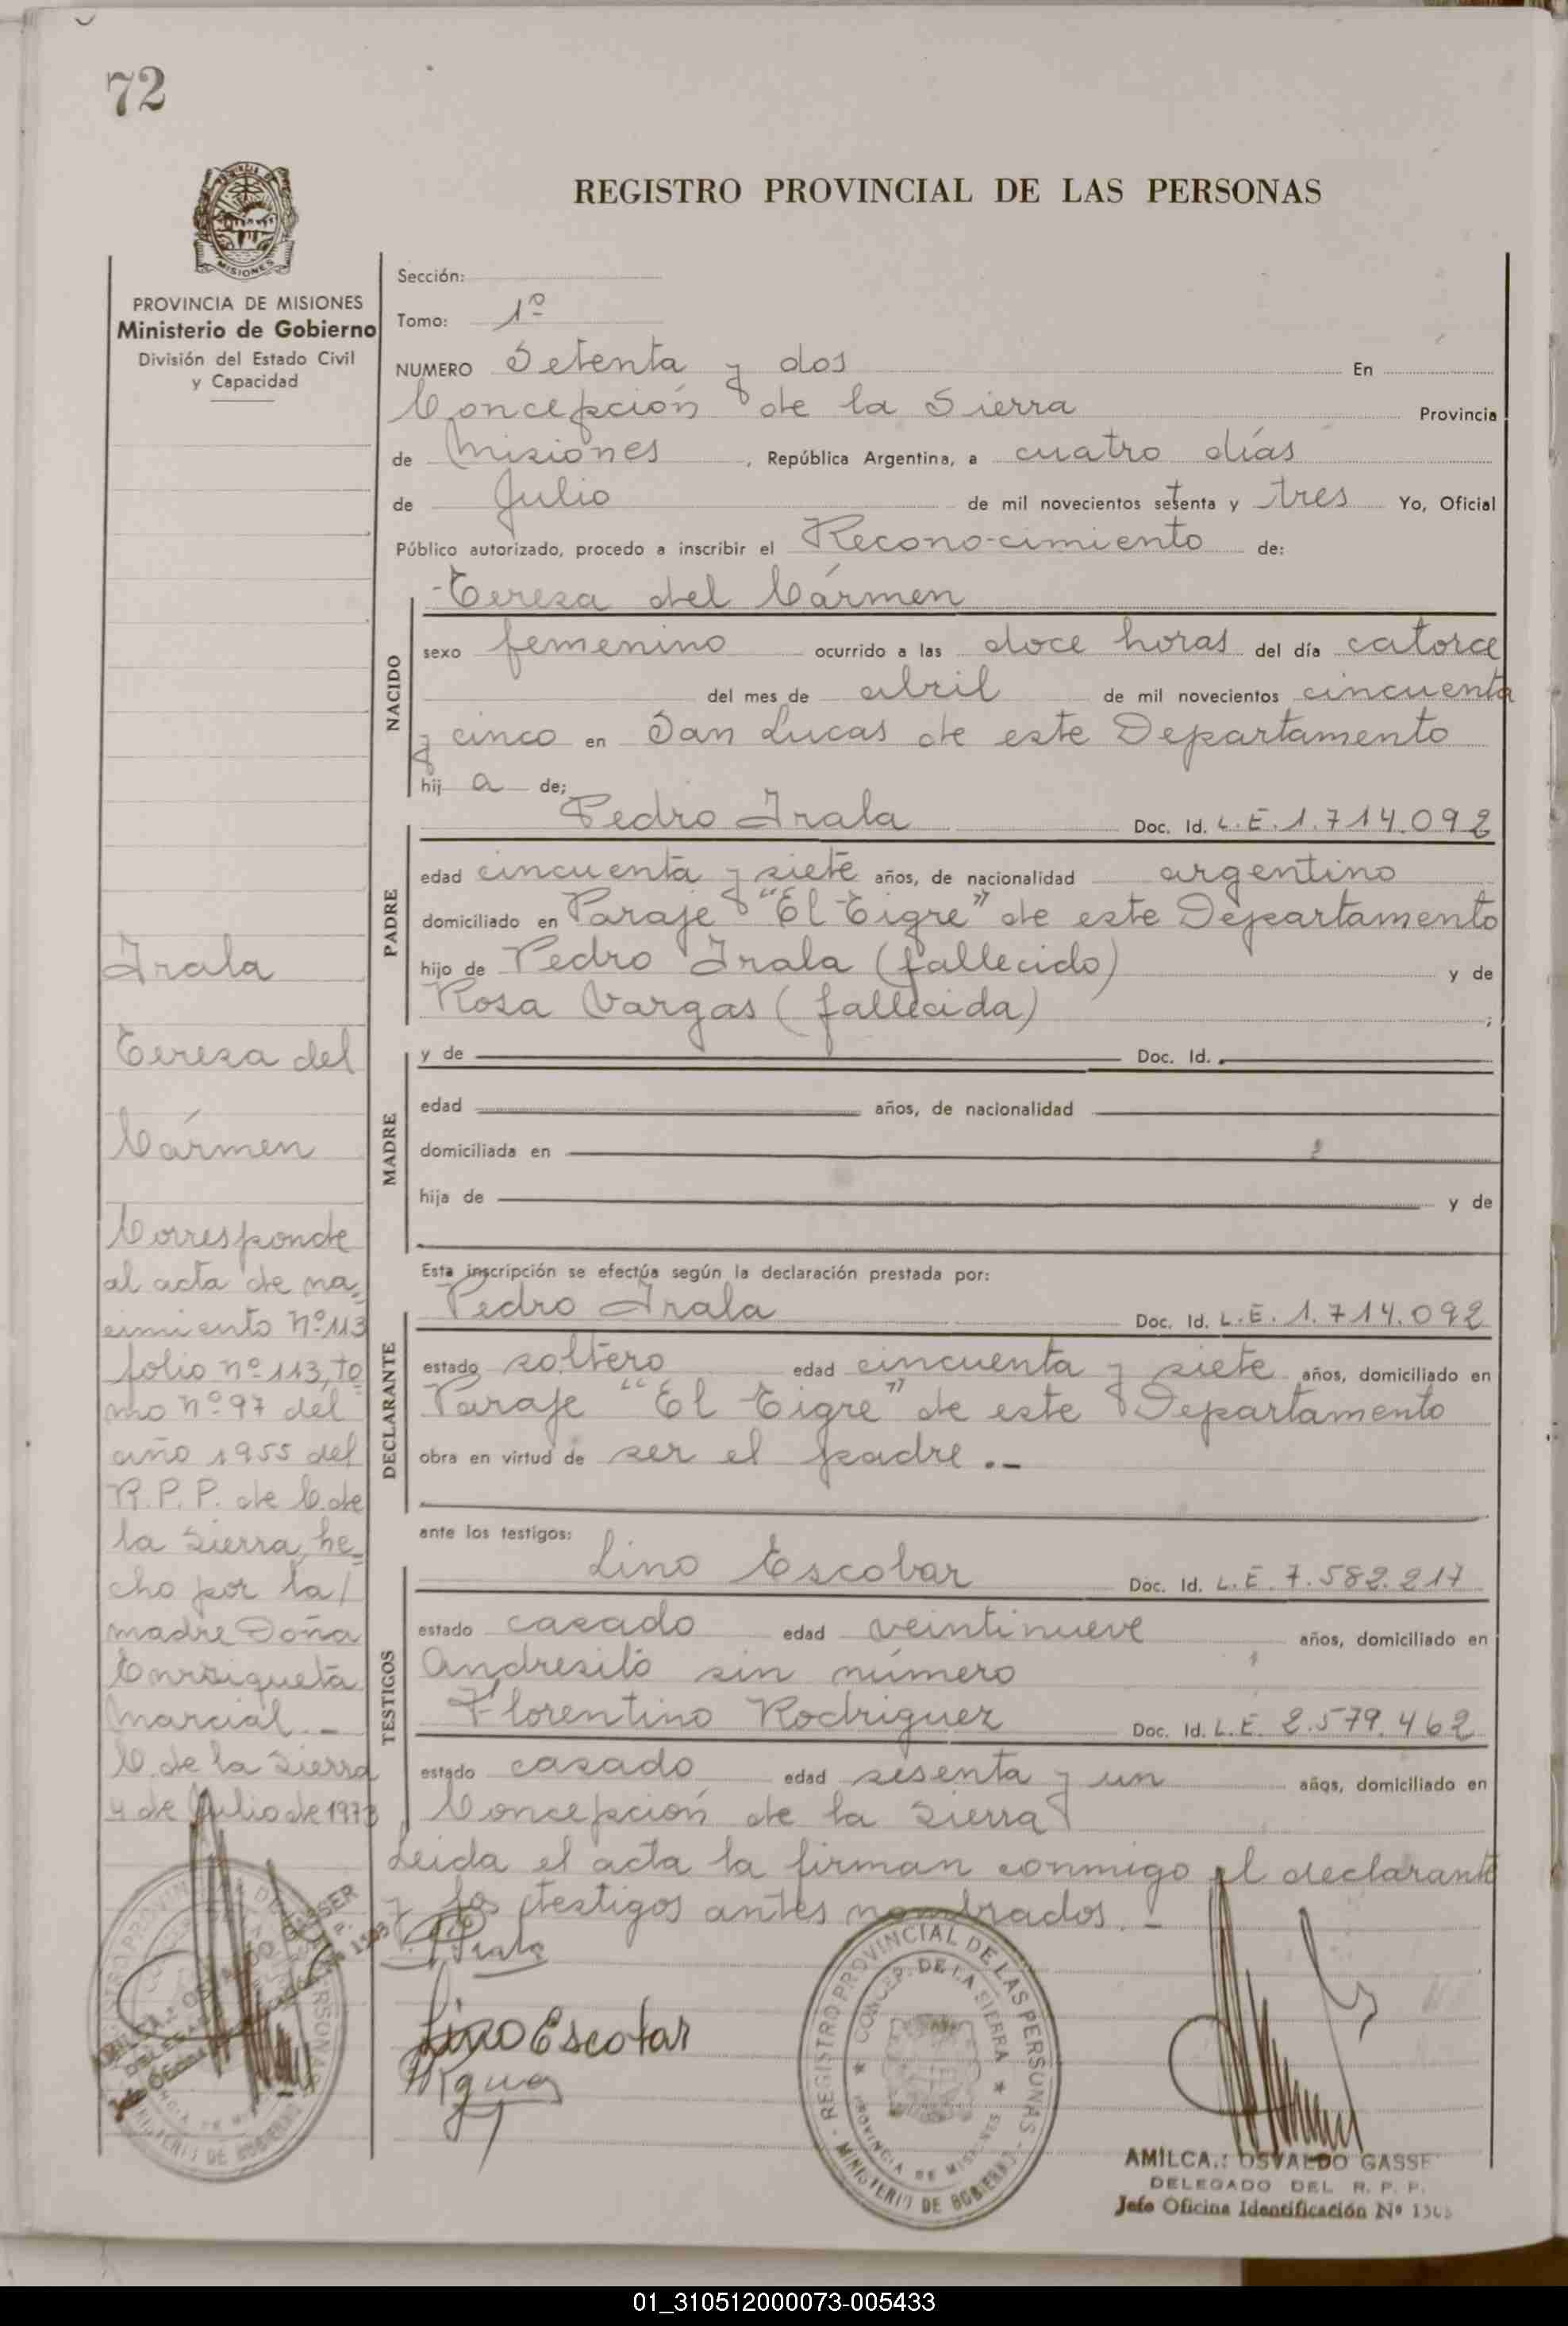 72
REGISTRO PROVINCIAL DE LAS PERSONAS
MISIONES
PROVINCIA DE MISIONES
Ministerio de Gobierno
División del Estado Civil
y Capacidad
Irala
Teresa del
Cármen
Corresponde
al acta de na-
cimiento Nº 113
folio nº 113, to
mo nº 97 del
año 1955 del
R.P.P. de C. de
la Sierra, he-
cho por la/
madre Doña
Enrriqueta
Marcial.-
C. de la Sierra
4 de Julio de 1973
Sección:
Tomo: 1º
NUMERO Setenta y dos En
Concepción de la Sierra Provincia
de Misiones, República Argentina, a cuatro días
de Julio de mil novecientos setenta y tres Yo, Oficial
Público autorizado, procedo a inscribir el Recono-cimiento de:
Teresa del Cármen
NACIDO
sexo femenino ocurrido a las doce horas del día catorce
del mes de abril de mil novecientos cincuenta
y cinco en San Lucas de este Departamento
hij a de;
PADRE
Pedro Irala Doc. Id. L.E. 1.714.092
edad cincuenta y siete años, de nacionalidad argentino
domiciliado en Paraje "El Tigre" de este Departamento
hijo de Pedro Irala (fallecido) y de
Rosa Vargas (fallecida) ;
MADRE
y de Doc. Id.
edad años, de nacionalidad
domiciliada en
hija de y de
Esta inscripción se efectúa según la declaración prestada por:
DECLARANTE
Pedro Irala Doc. Id. L.E. 1.714.092
estado soltero edad cincuenta y siete años, domiciliado en
Paraje "El Tigre" de este Departamento
obra en virtud de ser el padre.-
ante los testigos:
TESTIGOS
Lino Escobar Doc. Id. L.E. 7.582.217
estado casado edad veintinueve años, domiciliado en
Andresito sin número
Florentino Rodriguez Doc. Id. L.E. 2.579.462
estado casado edad sesenta y un años, domiciliado en
Concepción de la Sierra
Leida el acta la firman conmigo el declarante
y los testigos antes nombrados.-
Lino Escobar
REGISTRO PROVINCIAL DE LAS PERSONAS
CONCEP. DE LA SIERRA
PROVINCIA DE MISIONES
MINISTERIO DE GOBIERNO
AMILCA.: OSVALDO GASSE
DELEGADO DEL R. P. P.
Jefe Oficina Identificación Nº 1503
01_310512000073-005433